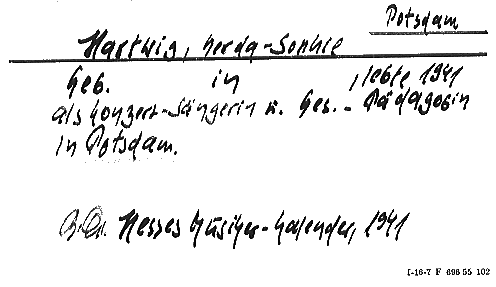 Potsdam
Hartwig, Gerda-Sophie
Geb. in , lebte 1941
als Konzert-Sängerin u. Ges.-Pädagogin
in Potsdam.
Hesses Musiker-Kalender, 1941
I-16-7 F 696 55 102